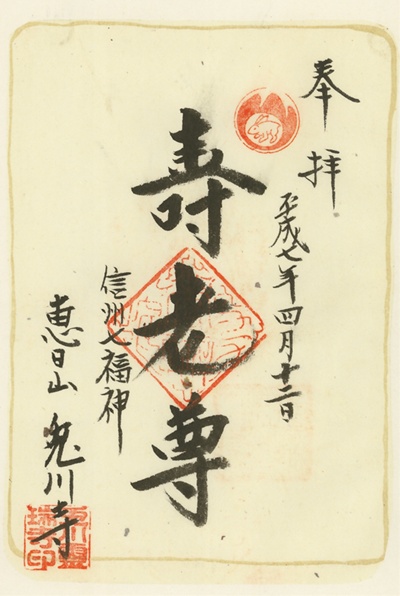 奉拝
平成七年四月十二日
寿老尊
信州七福神
恵日山 兎川寺